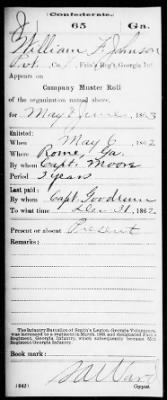 Confederate.
J 65 Ga.
William F Johnson
Pvt., Co. Reg't, Georgia Inf.
Appears on
Company Muster Roll
of the organization named above,
for May & June, 1863
Enlisted:
When May 6, 1862
Where Rome, Ga.
By whom Capt. Moore
Period 3 years
Last paid:
By whom Capt Goodrum
To what time Dec 31, 1862
Present or absent Present
The Infantry Battalion of Smith's Legion, Georgia Volunteers,
was increased to a regiment in March, 1863, and designated
Regiment, Georgia Infantry, which subsequently became 65th
Regiment Georgia Infantry.
Book mark:
(642)
Copyist.